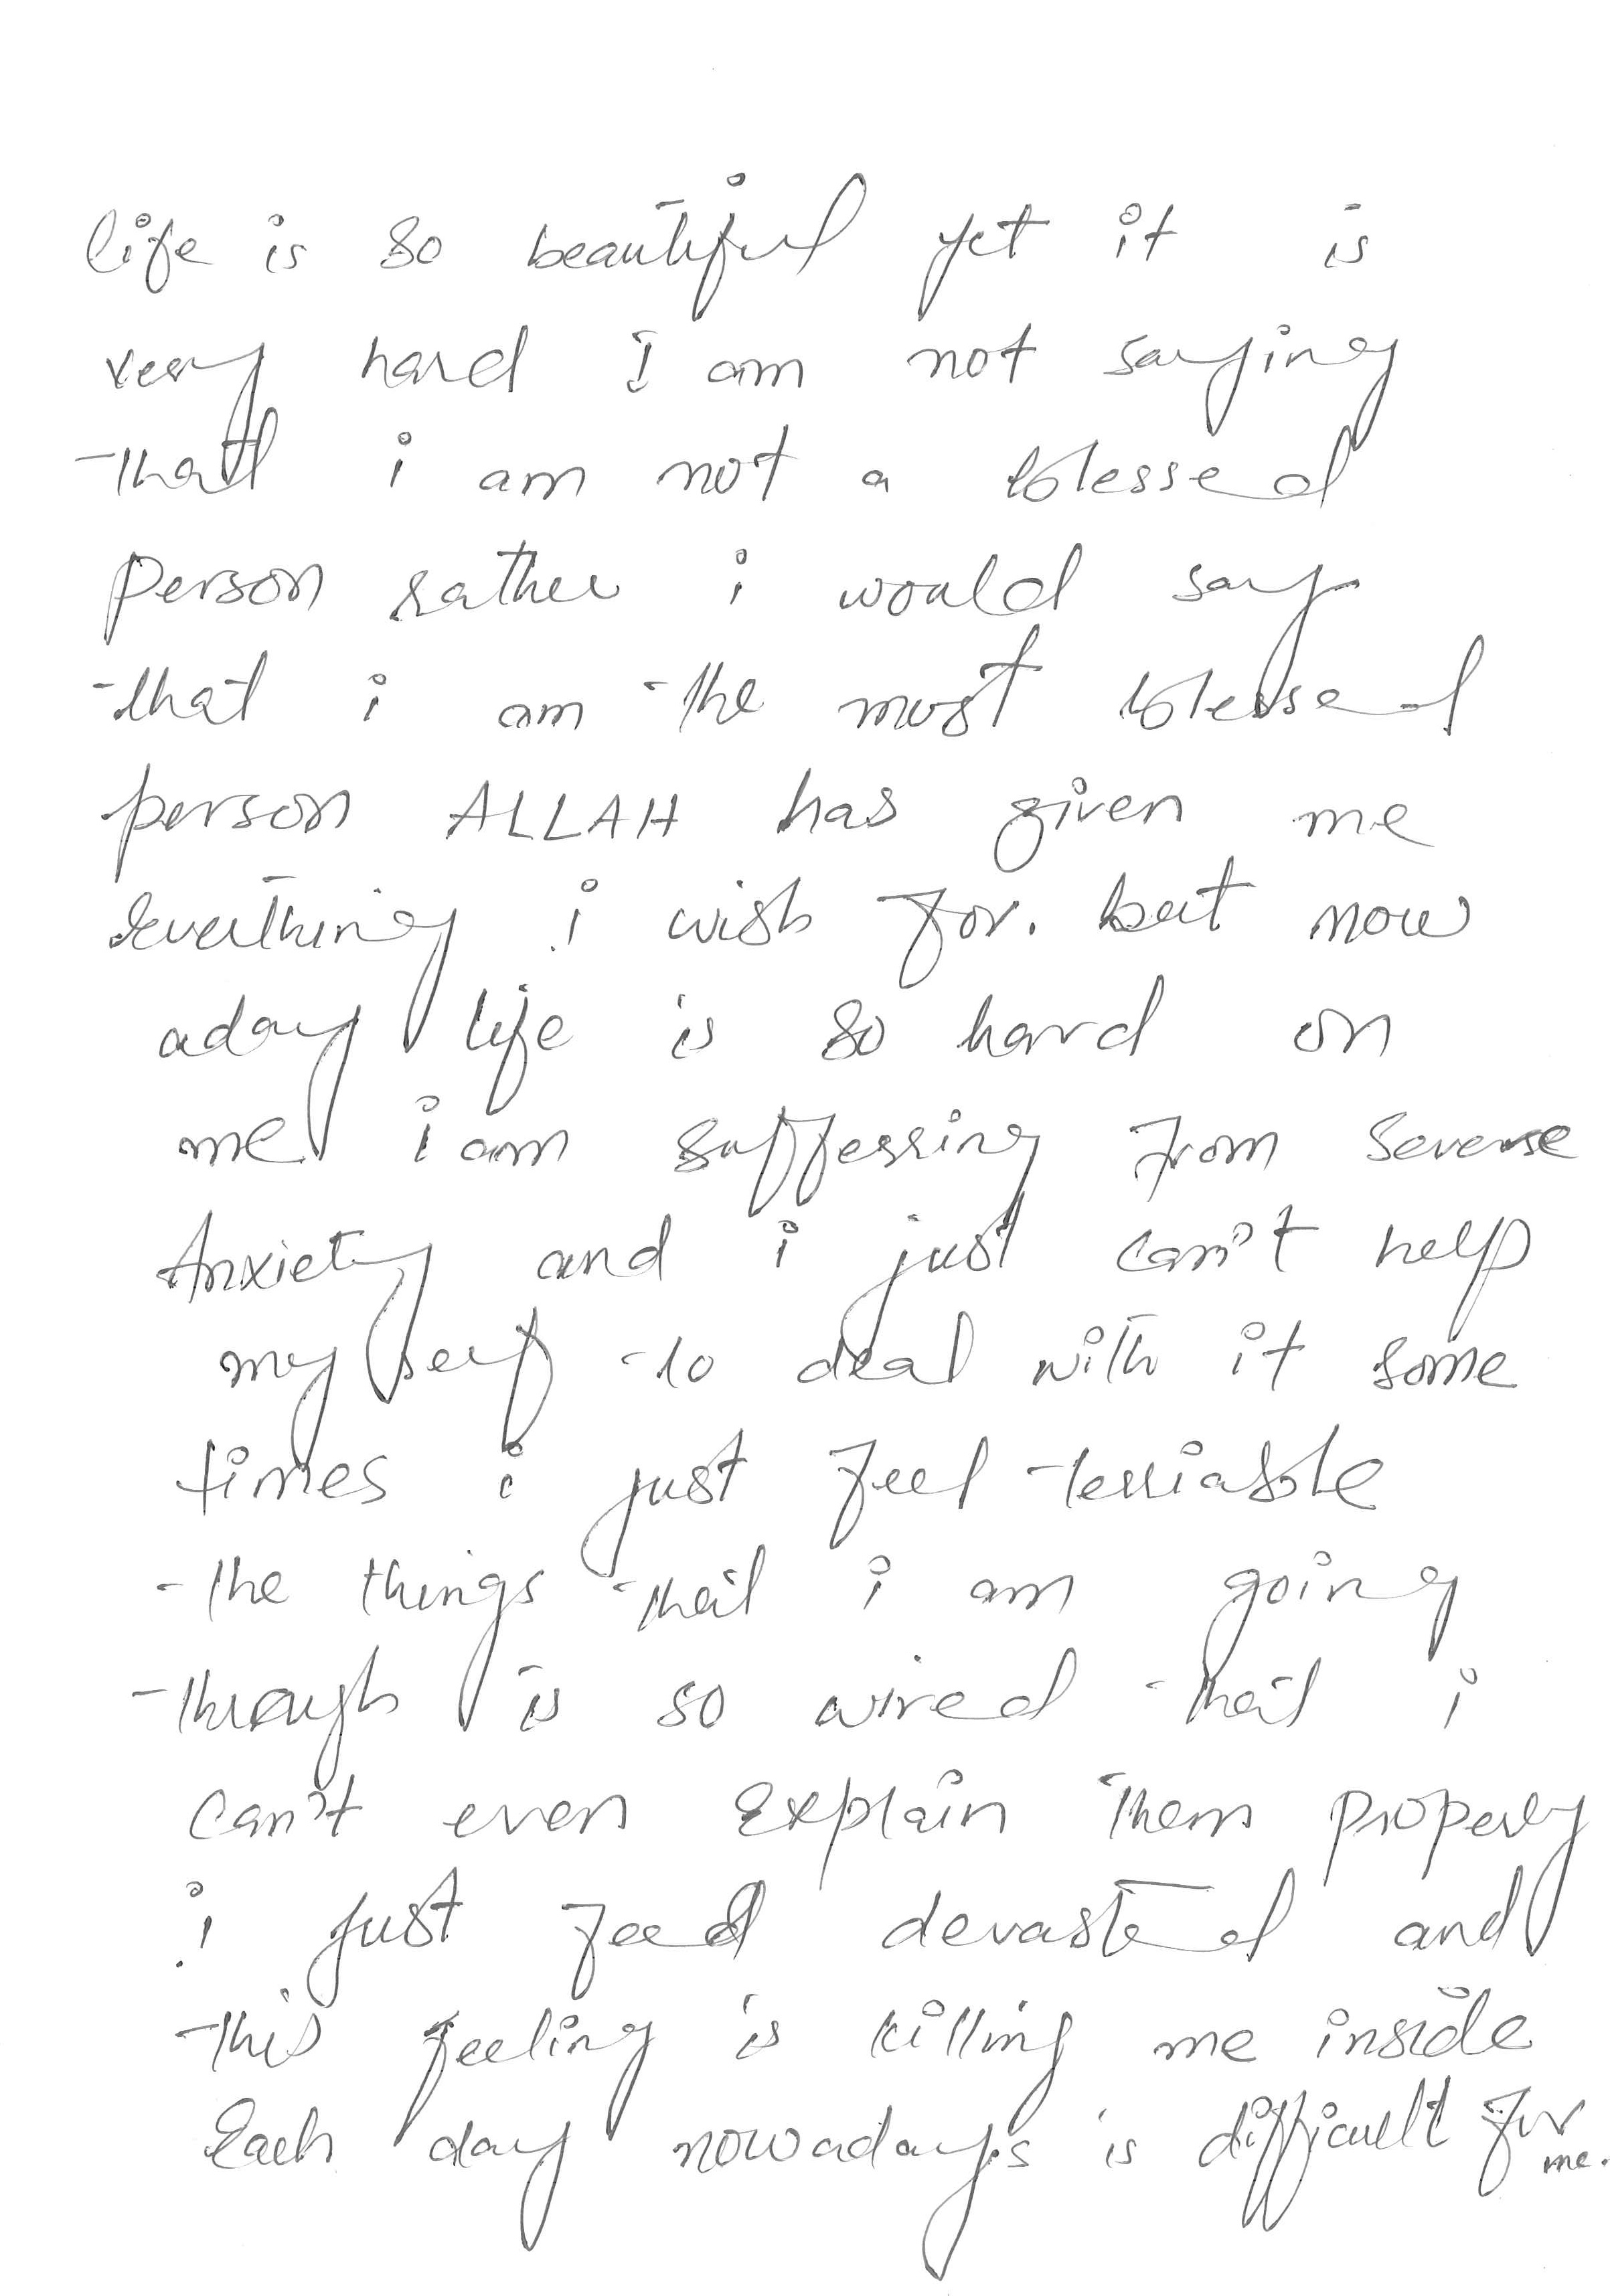 life is so beautiful yet it is
very hard I am not saying
that i am not a blessed
person rather i would say
that i am the most blessed
person ALLAH has given me
everthing i wish for. but now
aday life is so hard on
me i am suffering from severe
Anxiety and i just can't help
my self to deal with it some
times i just feel terriable
the things that i am going
through is so wired that i
can't even explain them properly
i just feel devasted and
this feeling is killing me inside
Each day nowadays is difficult for
me.